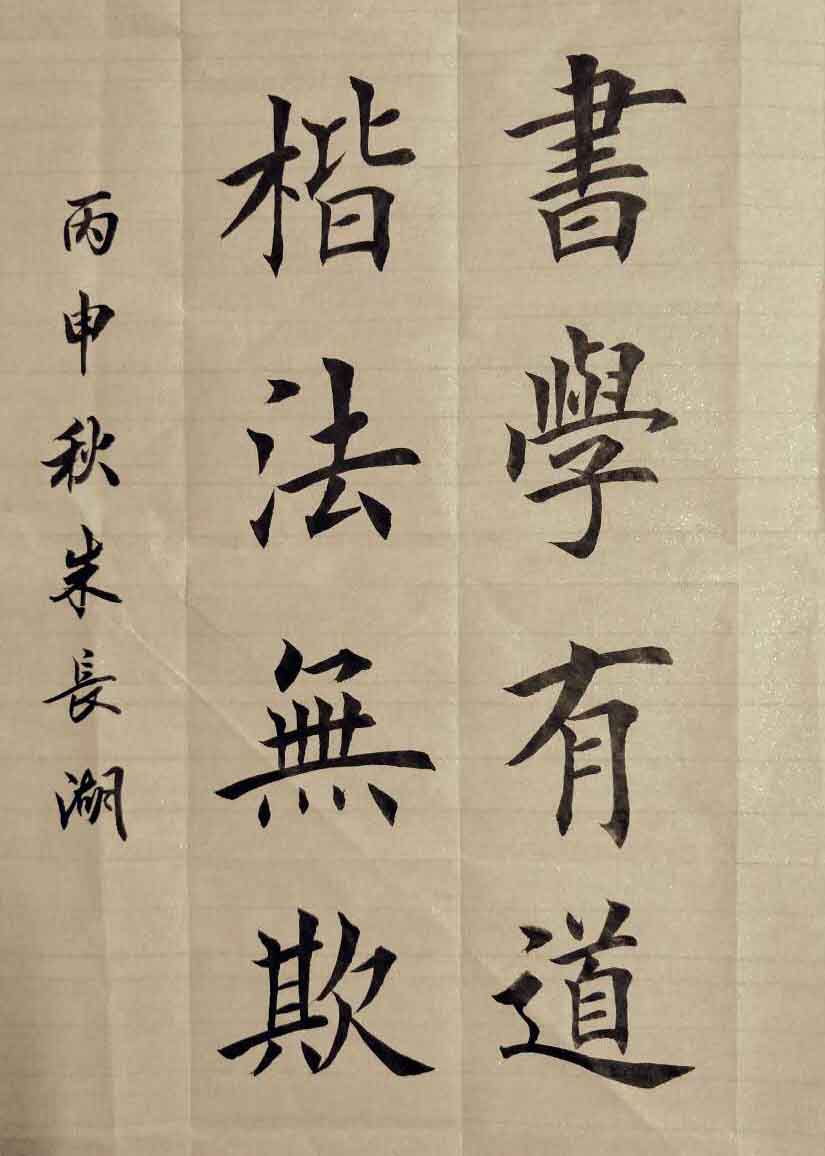 書學有道
楷法無欺
丙申秋朱長湖